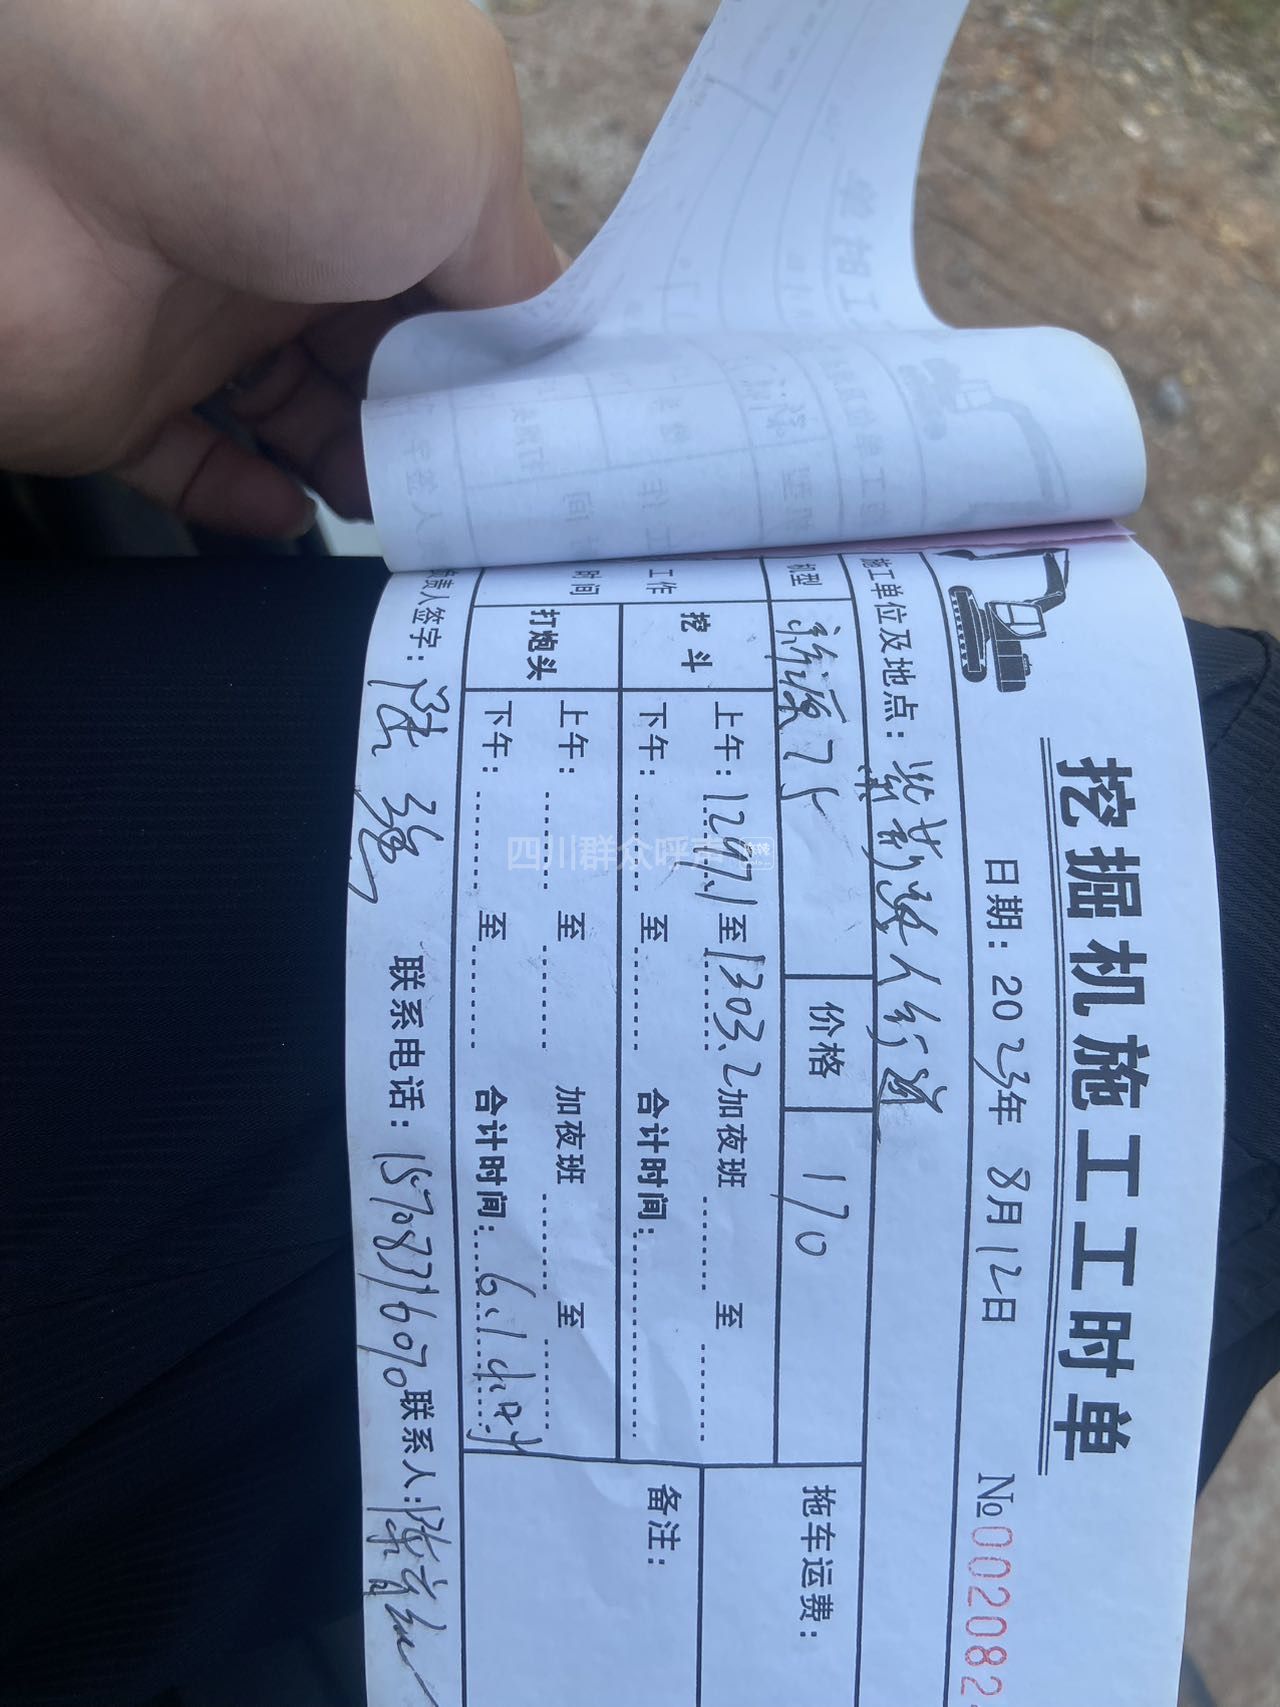 挖掘机施工工时单
日期: 2023年 8月12日 №002082
施工单位及地点: 人行道
机型 75 价格 170 拖车运费:
工作时间 挖斗 上午: 1297.1 至 1303.2 加夜班 至
下午: 至 合计时间: 备注:
打炮头 上午: 至 加夜班 至
下午: 至 合计时间: 6.1小时
责人签字: 陆强 联系电话: 15708316070 联系人: 陈
四川群众呼声